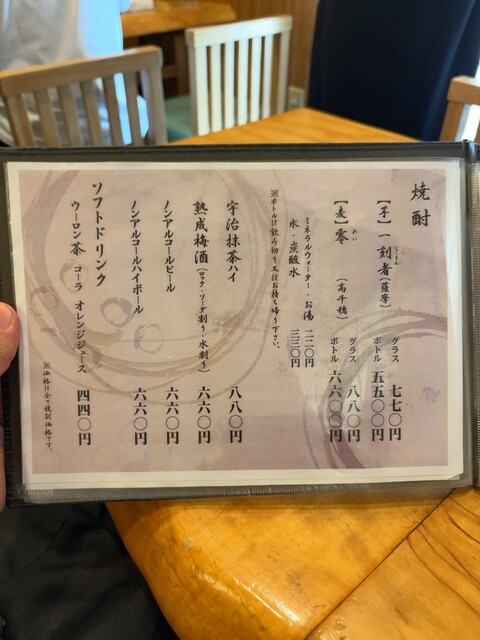 焼酎
【芋】一刻者(薩摩)
いっこもん
グラス 七七〇円
ボトル 五五〇〇円
【麦】零 (高千穂)
れい
グラス 八八〇円
ボトル 六六〇〇円
ミネラルウォーター・お湯 二二〇円
氷・炭酸水 三三〇円
※ボトルは飲み切り又はお持ち帰り下さい。
宇治抹茶ハイ 八八〇円
熟成梅酒(ロック・ソーダ割り・水割り) 六六〇円
ノンアルコールビール 六六〇円
ノンアルコールハイボール 六六〇円
ソフトドリンク
ウーロン茶 コーラ オレンジジュース 四四〇円
※価格は全て税別価格です。